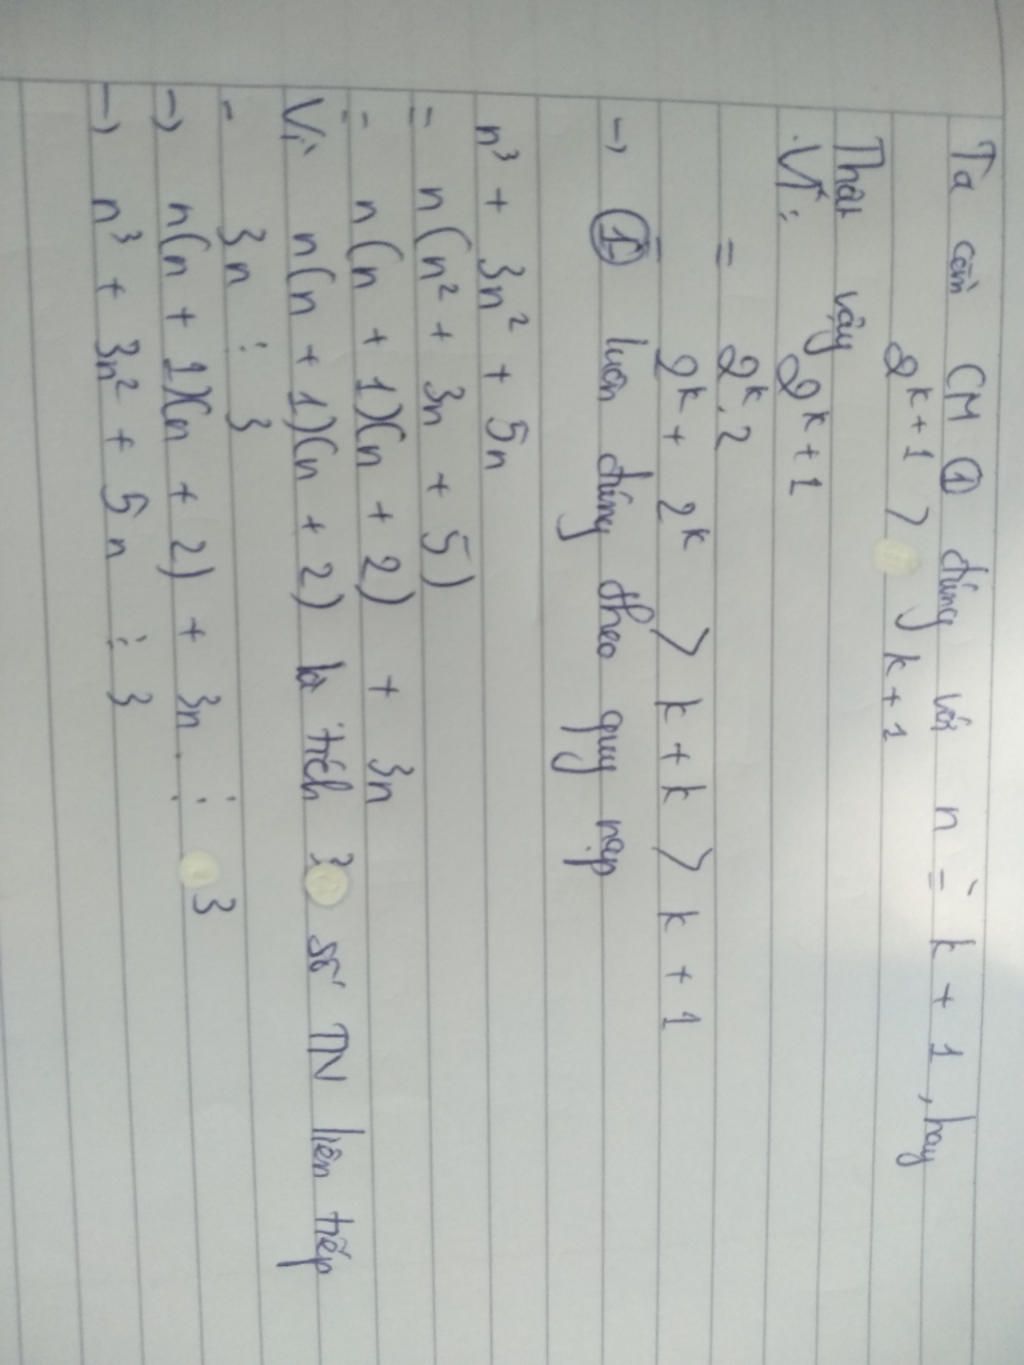 Ta cần CM ① đúng với n = k + 1, hay
2^{k+1} > k+1
Thật vậy
Vì: 2^{k+1}
= 2^k . 2
= 2^k + 2^k > k + k > k + 1
→ ① luôn đúng theo quy nạp
n³ + 3n² + 5n
= n(n² + 3n + 5)
= n(n + 1)(n + 2) + 3n
Vì n(n + 1)(n + 2) là tích 3 số TN liên tiếp
- 3n ⋮ 3
→ n(n + 1)(n + 2) + 3n ⋮ 3
→ n³ + 3n² + 5n ⋮ 3